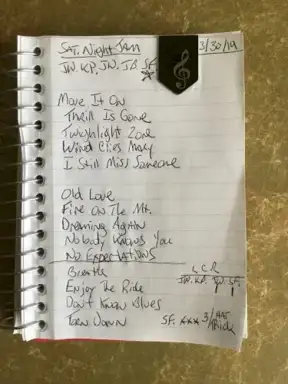 SAT. Night Jam 3/30/19
JW. KP. JW. JB SF.
Move It On
Thrill Is Gone
Twighlight Zone
Wind Cries Mary
I Still Miss Someone
Old Love
Fire On The Mt.
Dreaming Again
Nobody Knows You
No Expectations
L C R
JW. KP. JW. SF.
Enjoy The Ride
Don't Know Blues
Torn Down
SF. *** 3/